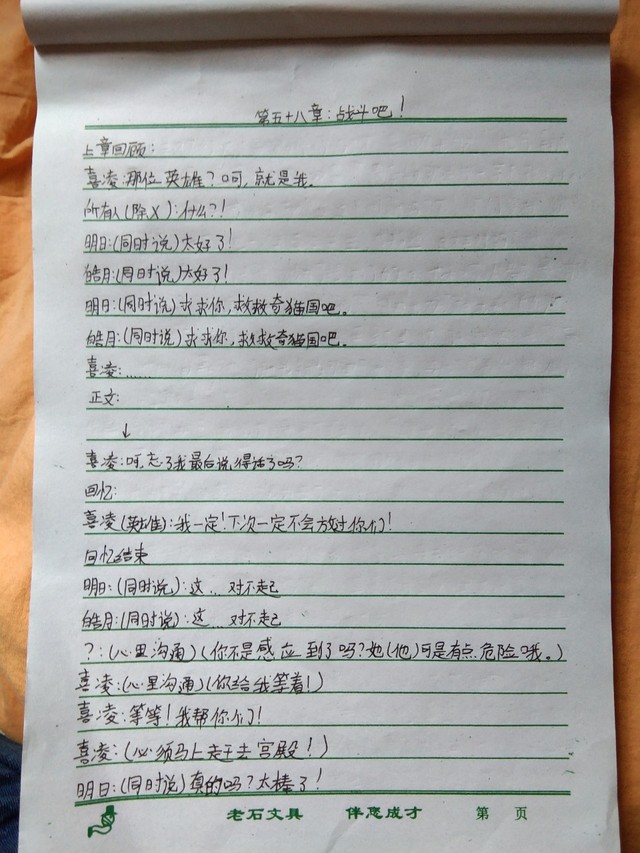 第五十八章:战斗吧!
上章回顾:
喜凌:那位英雄?呵,就是我。
所有人(除X):什么?!
明日:(同时说)太好了!
皓月:(同时说)太好了!
明日:(同时说)求求你,救救奇猫国吧。
皓月:(同时说)求求你,救救奇猫国吧。
喜凌:……
正文:
↓
喜凌:呵,忘了我最后说得话了吗?
回忆:
喜凌(英雄):我一定!下次一定不会放过你们!
回忆结束
明日:(同时说):这...对不起
皓月:(同时说):这...对不起
?:(心里沟通)(你不是感应到了吗?她(他)可是有点危险哦。)
喜凌:(心里沟通)(你给我等着!)
喜凌:等等!我帮你们!
喜凌:(必须马上赶去宫殿!)
明日:(同时说)真的吗?太棒了!
老石文具 伴您成才 第 页